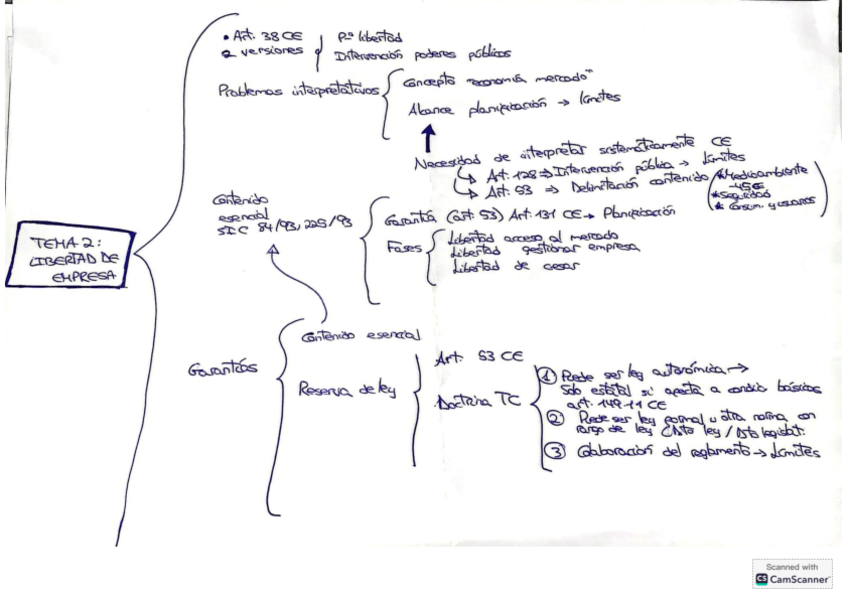 • Art. 38 CE
2 versiones
Pº libertad
Intervención poderes públicos
Problemas interpretativos
Concepto "economía mercado"
Alcance planificación → límites
Necesidad de interpretar sistemáticamente CE
↳ Art. 128 ⇒ Intervención pública → Límites
↳ Art. 53 ⇒ Delimitación contenido
* Medioambiente
-45CE
* Seguridad
* Consum. y usuarios
Contenido
esencial
STC 84/93, 225/93
Garantía (art. 53) Art. 131 CE → Planificación
Fases
Libertad acceso al mercado
Libertad gestionar empresa
Libertad de cesar
TEMA 2:
LIBERTAD DE
EMPRESA
Garantías
Contenido esencial
Reserva de ley
Art. 53 CE
Doctrina TC
① Puede ser ley autonómica →
Solo estatal si afecta a condic básicas
art. 149.1.1 CE
② Puede ser ley formal u otra norma con
rango de ley (Dto ley / Dto legislat.
③ Colaboración del reglamento → Límites
Scanned with
CS CamScanner